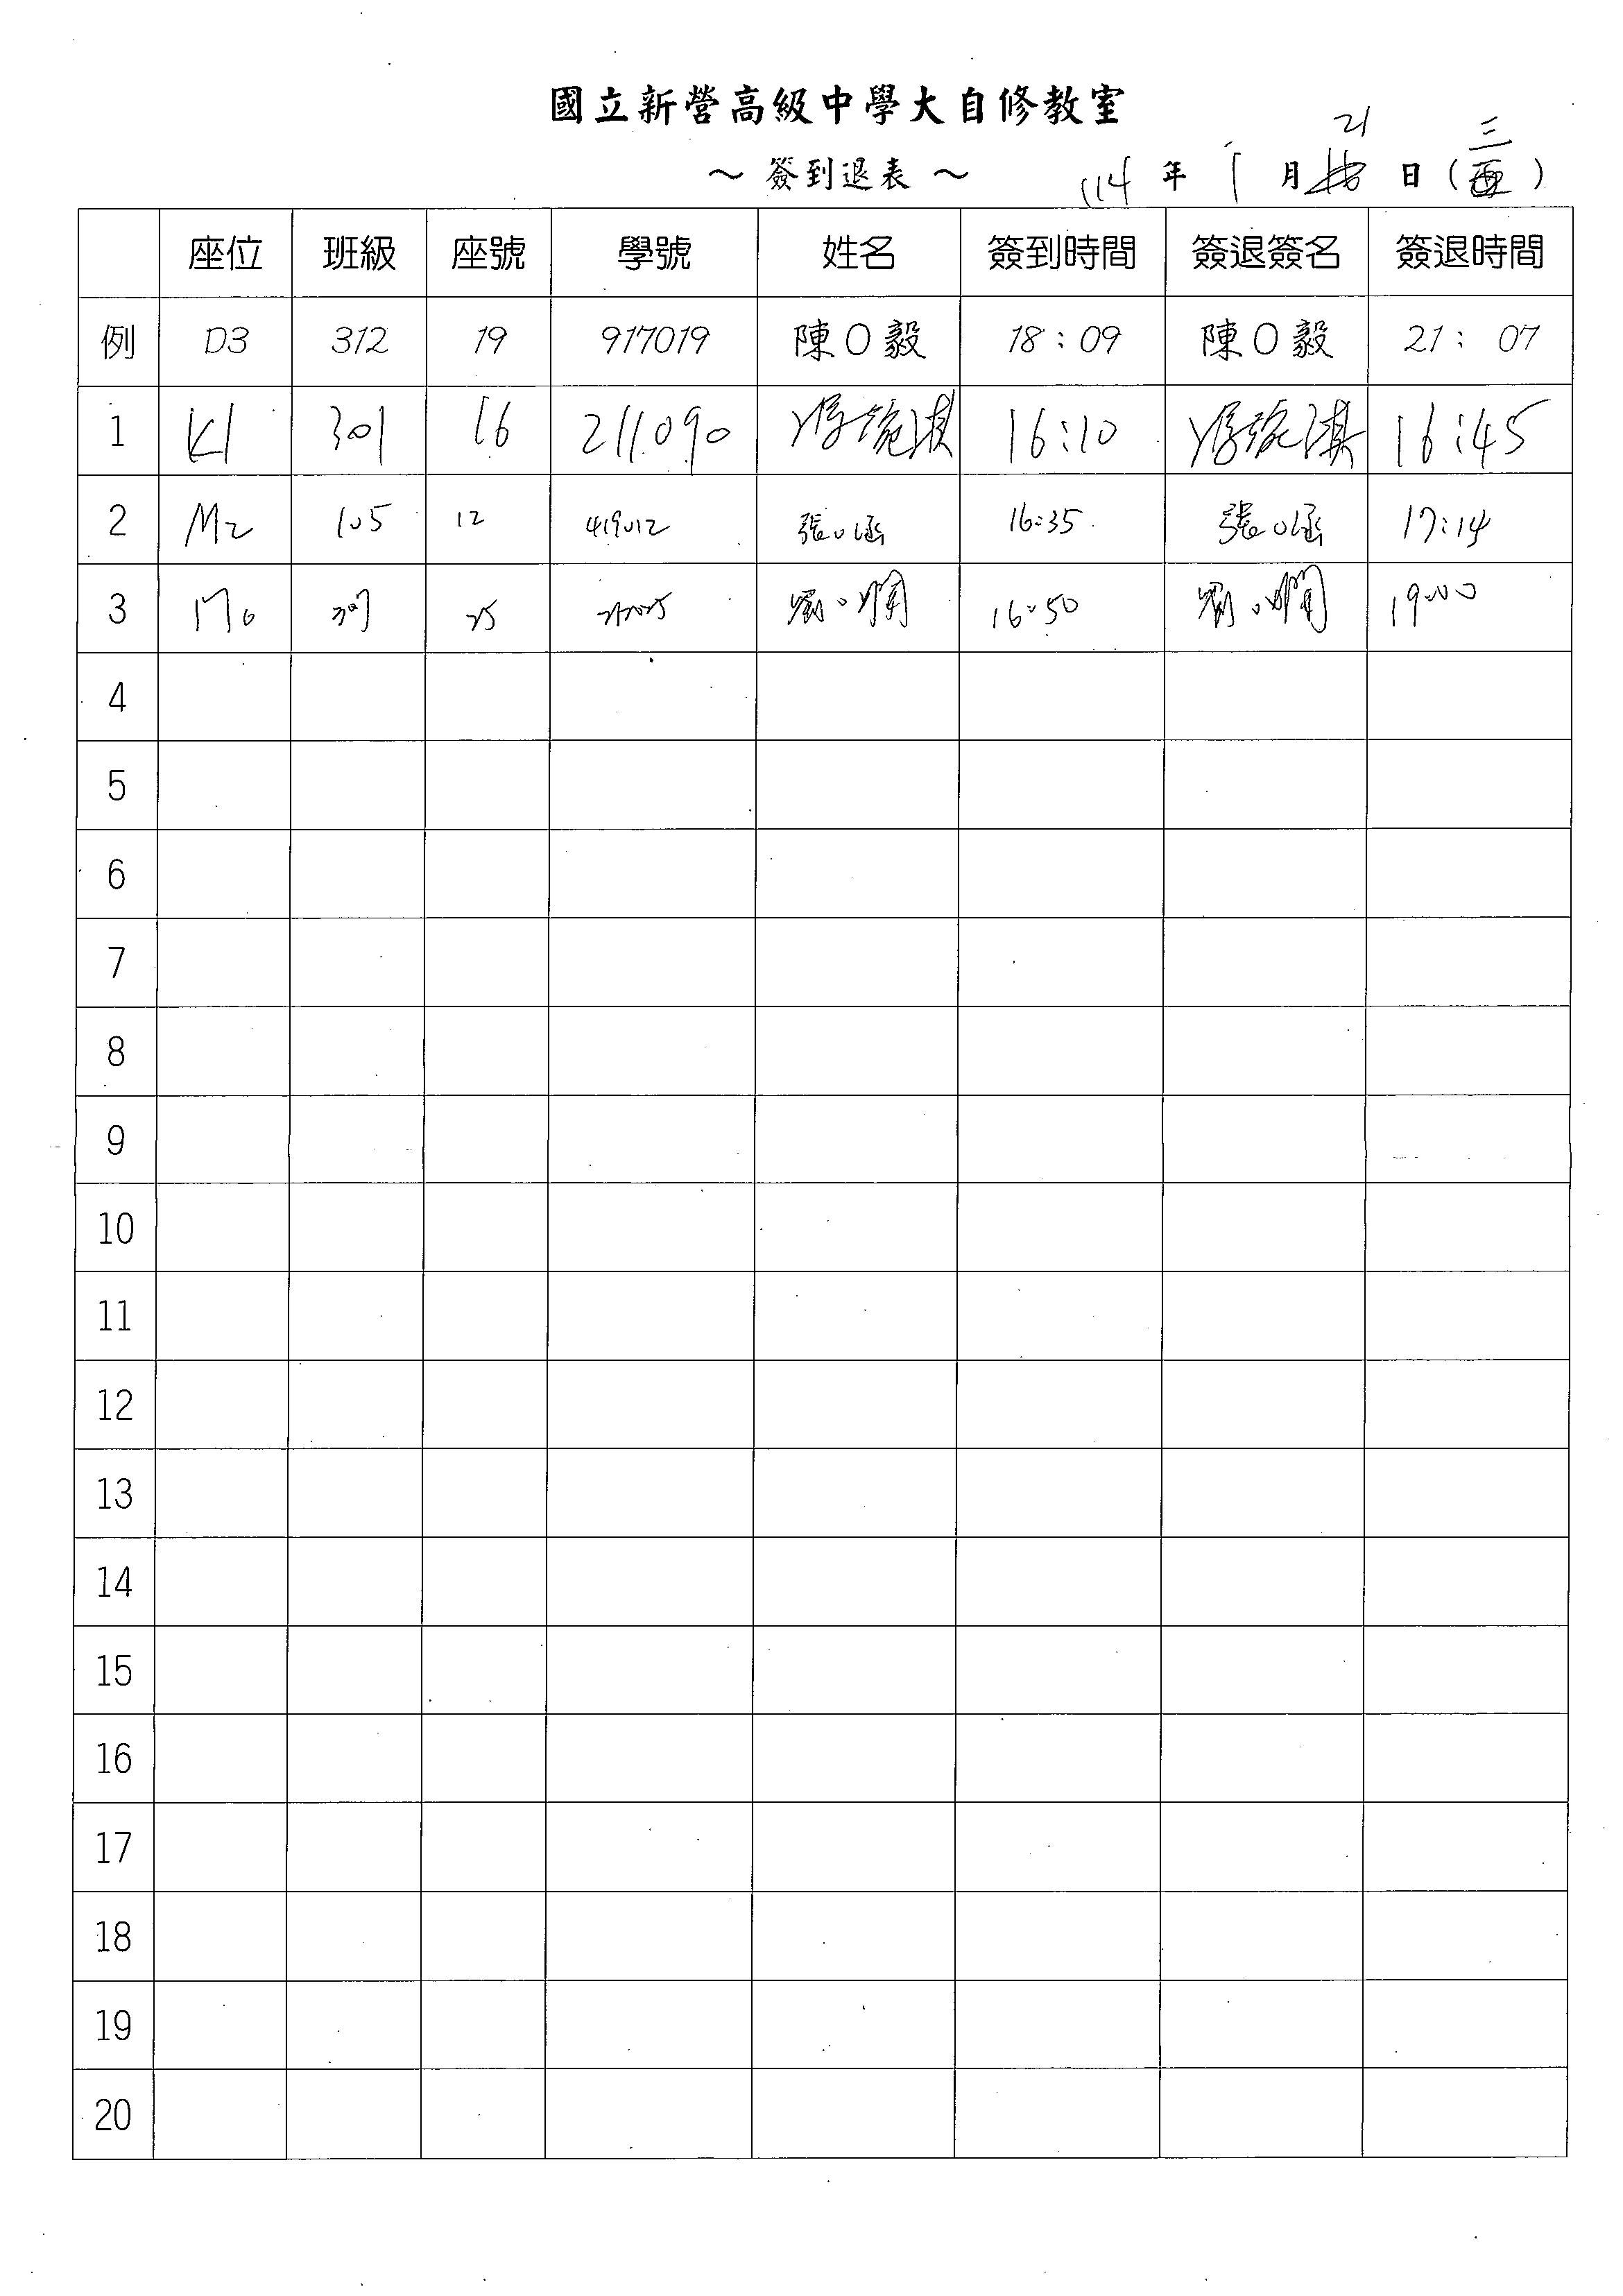 國立新營高級中學大自修教室
～ 簽到退表 ～ 114 年 1 月 21 日 ( 三 )
座位 班級 座號 學號 姓名 簽到時間 簽退簽名 簽退時間
例 D3 312 19 917019 陳O毅 18:09 陳O毅 21:07
1 K1 301 16 211090 16:10 16:45
2 M2 105 12 419012 張O涵 16:35 張O涵 17:14
3 M6 307 25 16:50 19:00
4
5
6
7
8
9
10
11
12
13
14
15
16
17
18
19
20